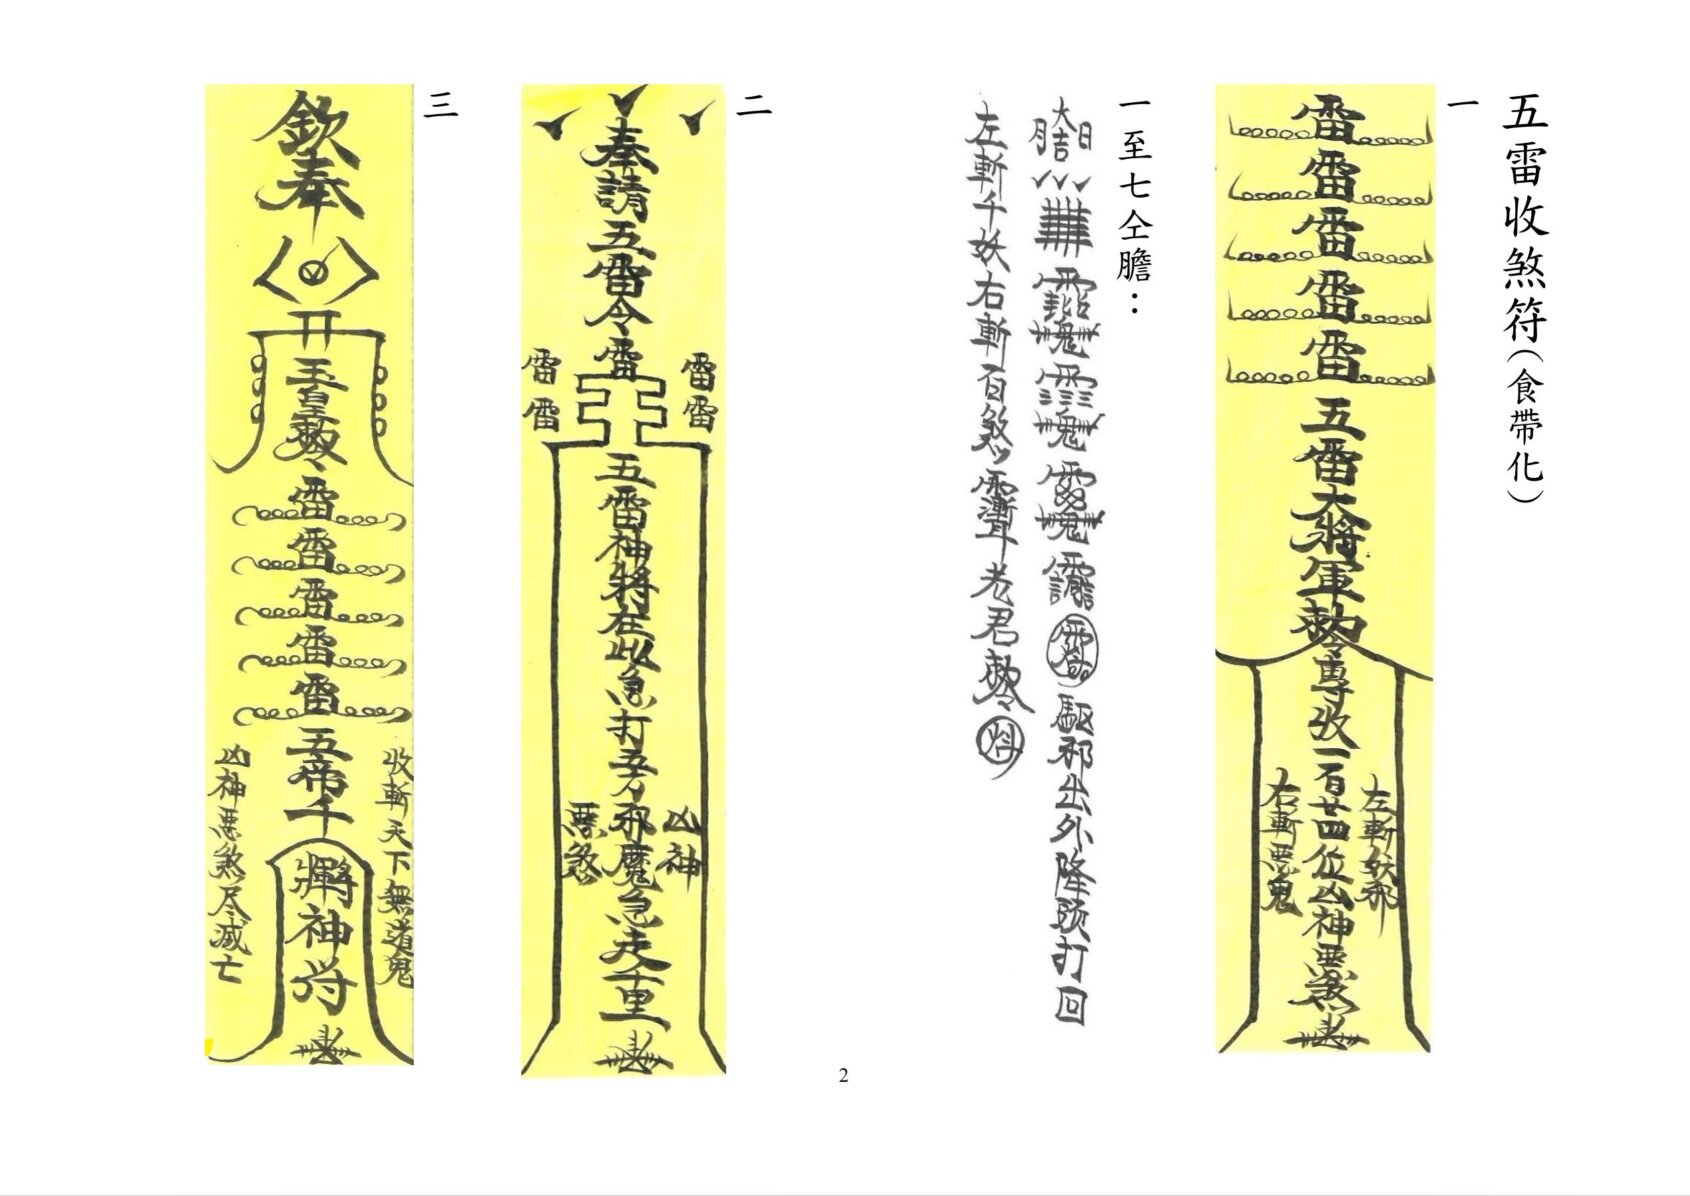 五雷收煞符（食帶化）
一
雷
雷
雷
雷
雷
五雷大將軍勅令專收一百廿四位凶神惡煞
左斬妖邪
右斬惡鬼
一至七仝膽：
驅邪出外降頭打回
左斬千妖右斬百煞
老君勅令
二
奉請五雷令
雷
雷雷
雷雷
五雷神將在此急打五方邪魔急走千里
凶神
惡煞
三
欽奉
玉皇勅令
雷
雷
雷
雷
雷
五帝千
神符
收斬天下無道鬼
凶神惡煞尽滅亡
2